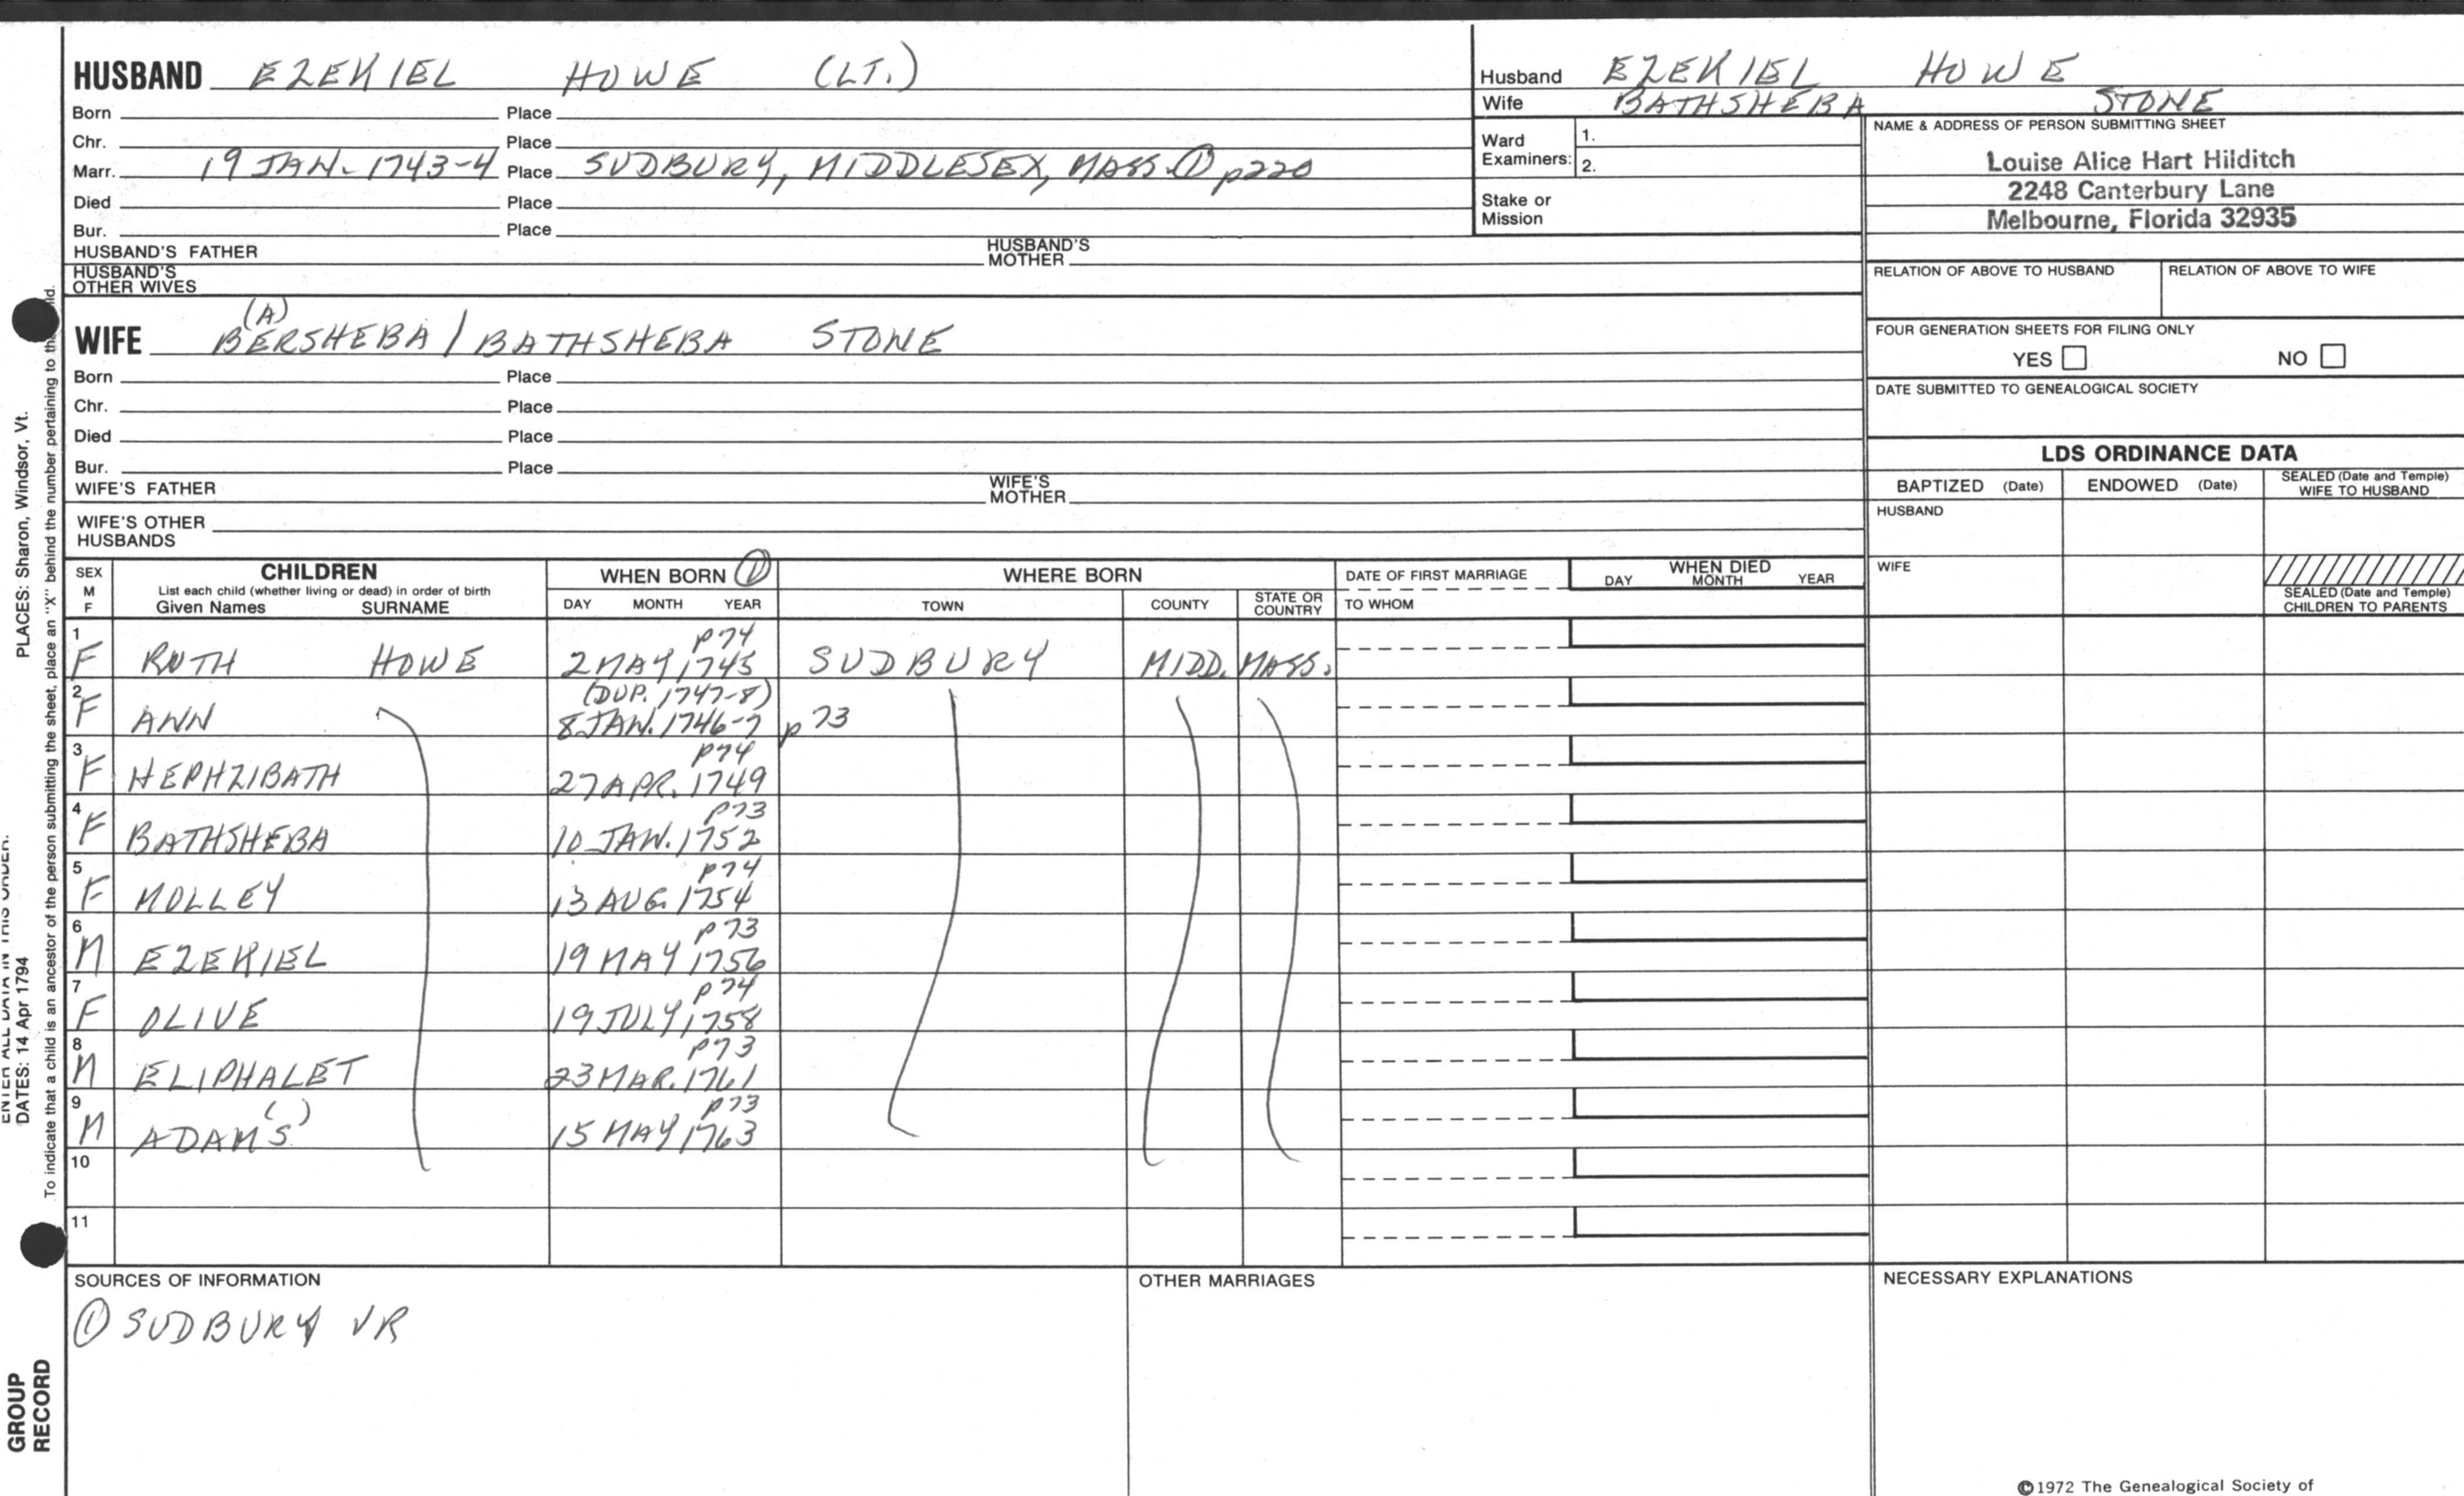 HUSBAND EZEKIEL HOWE (LT.)
Born Place
Chr. Place
Marr. 19 JAN. 1743-4 Place SUDBURY, MIDDLESEX, MASS. ① p220
Died Place
Bur. Place
HUSBAND'S FATHER HUSBAND'S MOTHER
HUSBAND'S OTHER WIVES
Husband EZEKIEL HOWE
Wife BATHSHEBA STONE
Ward Examiners: 1.
2.
Stake or Mission
NAME & ADDRESS OF PERSON SUBMITTING SHEET
Louise Alice Hart Hilditch
2248 Canterbury Lane
Melbourne, Florida 32935
RELATION OF ABOVE TO HUSBAND RELATION OF ABOVE TO WIFE
FOUR GENERATION SHEETS FOR FILING ONLY
YES NO
DATE SUBMITTED TO GENEALOGICAL SOCIETY
(A)
WIFE BERSHEBA / BATHSHEBA STONE
Born Place
Chr. Place
Died Place
Bur. Place
WIFE'S FATHER WIFE'S MOTHER
WIFE'S OTHER HUSBANDS
LDS ORDINANCE DATA
BAPTIZED (Date) ENDOWED (Date) SEALED (Date and Temple) WIFE TO HUSBAND
HUSBAND
WIFE
SEALED (Date and Temple) CHILDREN TO PARENTS
SEX M F
CHILDREN
List each child (whether living or dead) in order of birth
Given Names SURNAME
WHEN BORN ①
DAY MONTH YEAR
WHERE BORN
TOWN COUNTY STATE OR COUNTRY
DATE OF FIRST MARRIAGE
TO WHOM
WHEN DIED
DAY MONTH YEAR
p74
1 F RUTH HOWE 2 MAY 1745 SUDBURY MIDD. MASS.
(DUP. 1747-8)
2 F ANN 8 JAN. 1746-7 p73
p74
3 F HEPHZIBATH 27 APR. 1749
p73
4 F BATHSHEBA 10 JAN. 1752
p74
5 F MOLLEY 13 AUG. 1754
p73
6 M EZEKIEL 19 MAY 1756
p74
7 F OLIVE 19 JULY 1758
p73
8 M ELIPHALET 23 MAR. 1761
p73
9 M ADAM(S) 15 MAY 1763
10
11
SOURCES OF INFORMATION
① SUDBURY VR
OTHER MARRIAGES
NECESSARY EXPLANATIONS
©1972 The Genealogical Society of
PLACES: Sharon, Windsor, Vt.
DATES: 14 Apr 1794
To indicate that a child is an ancestor of the person submitting the sheet, place an "X" behind the number pertaining to
GROUP
RECORD